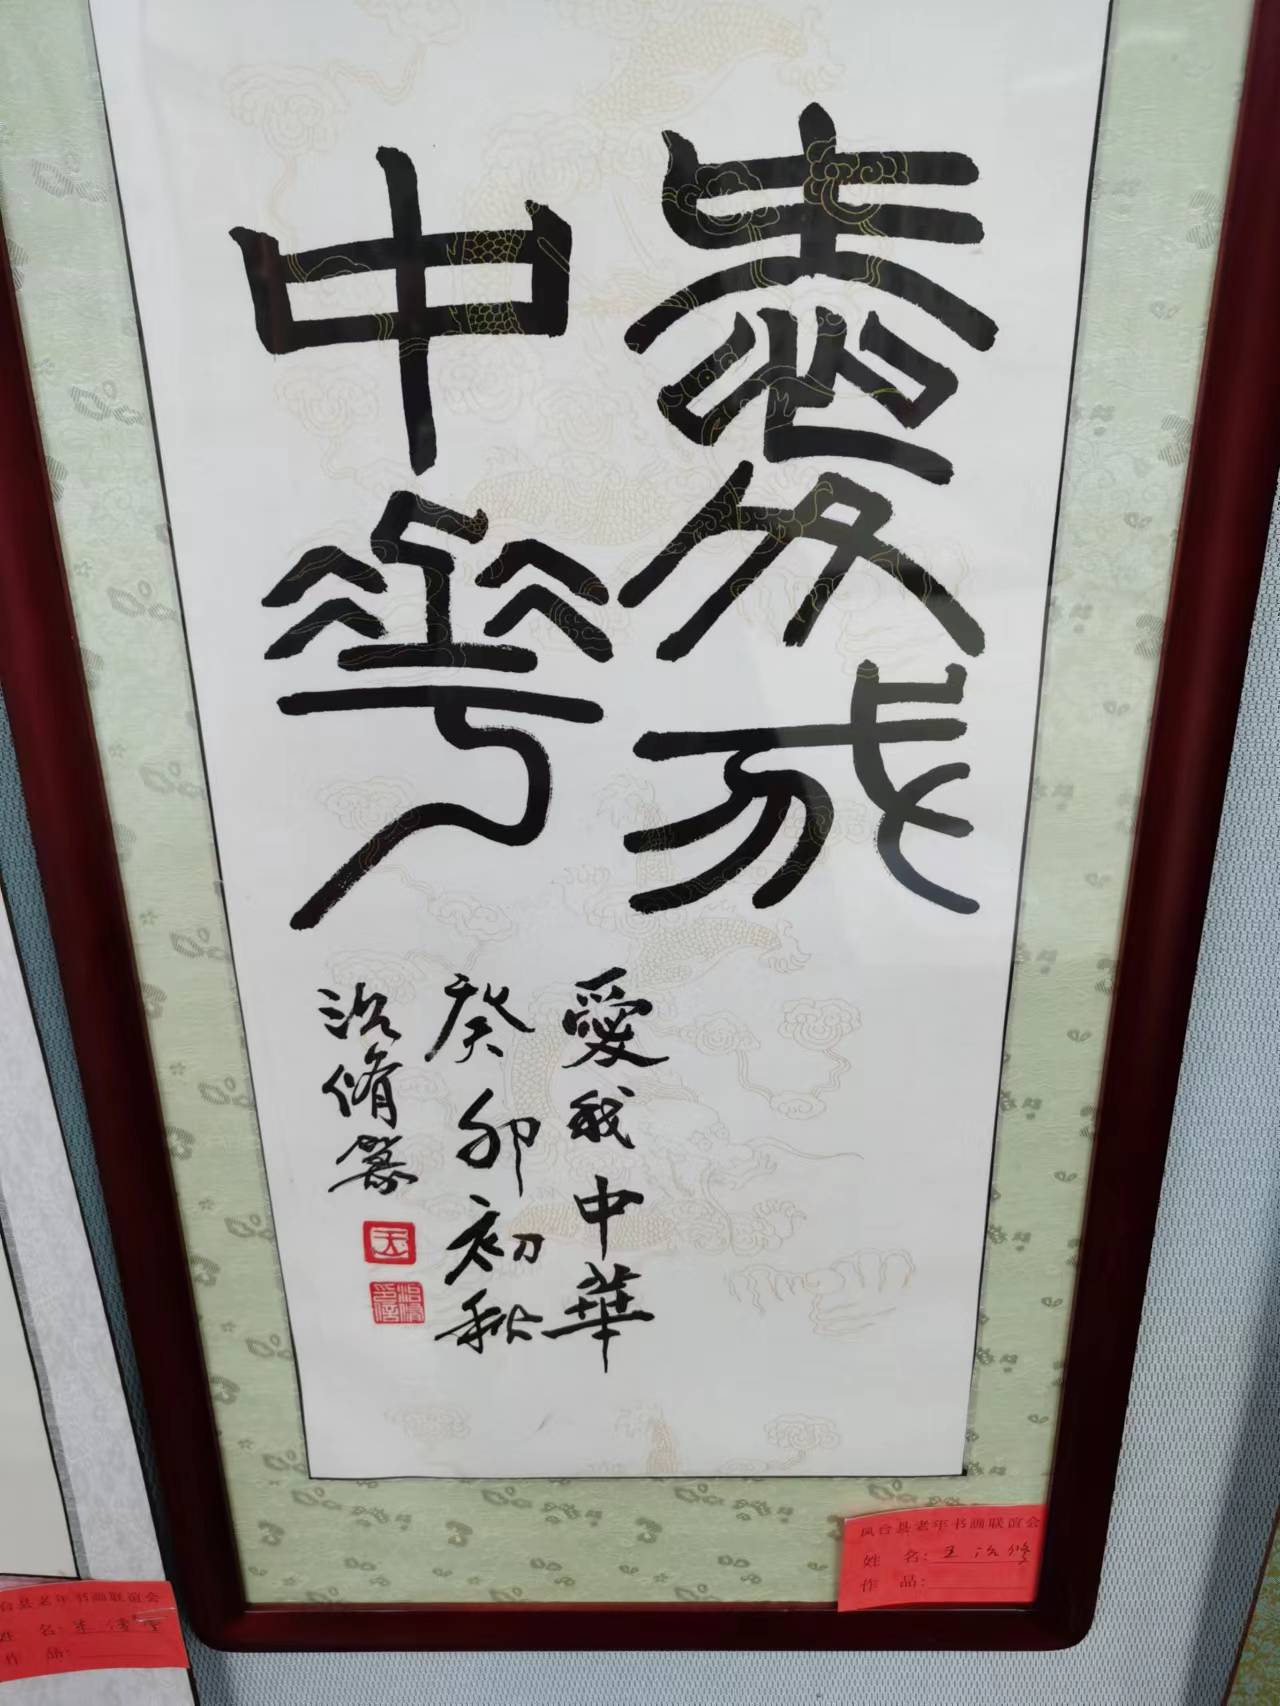 愛我
中華
愛我中華
癸卯初秋
治脩篆
凤台县老年书画联谊会
姓 名：王治修
作 品：
台县老年书画联谊会
姓 名：
作 品：